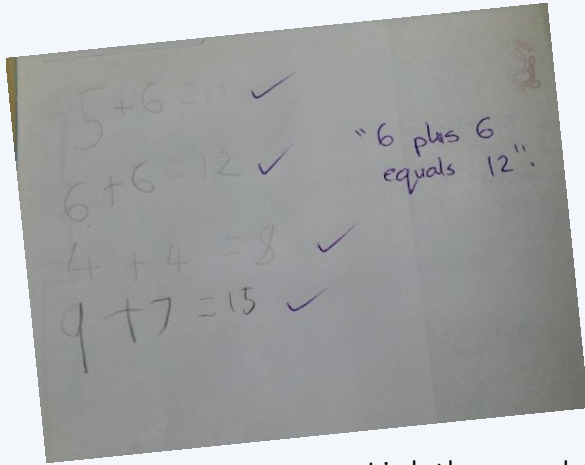 5+6=11 ✓
6+6=12 ✓
"6 plus 6
equals 12".
4+4=8 ✓
9+7=15 ✓